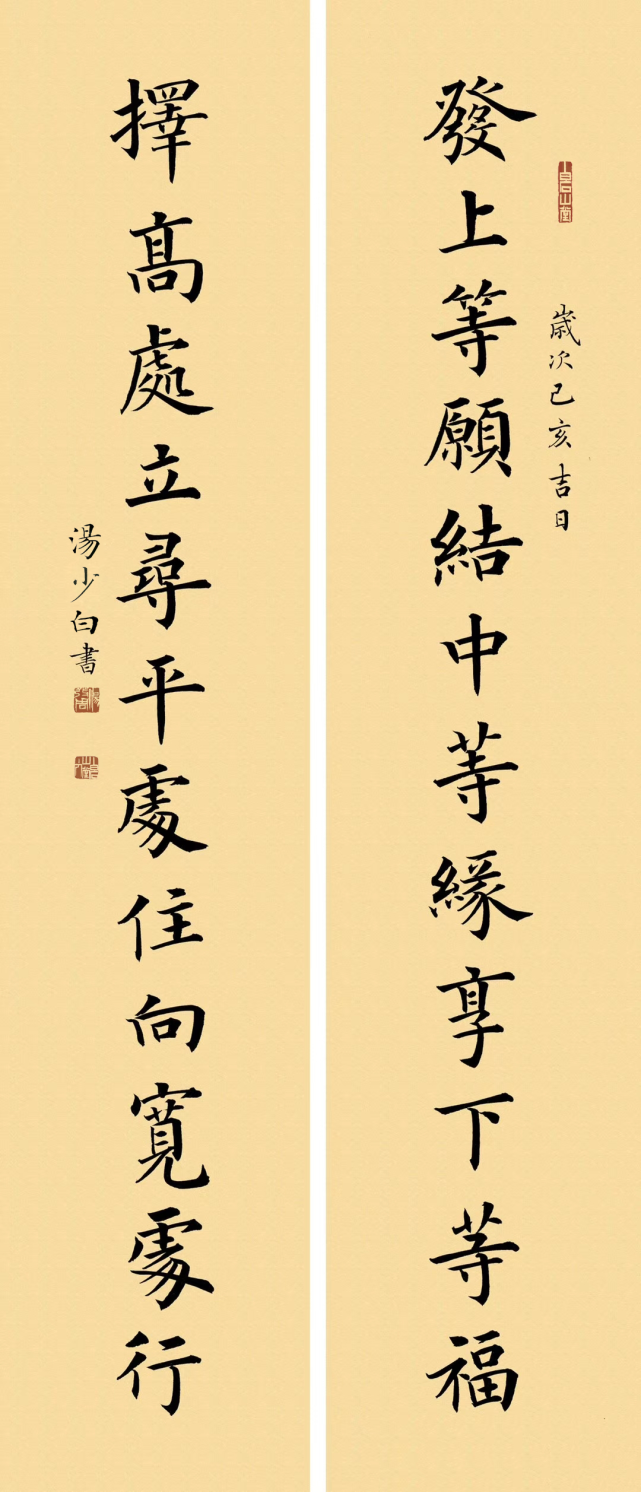 發上等願結中等緣享下等福
歲次己亥吉日
擇高處立尋平處住向寬處行
湯少白書